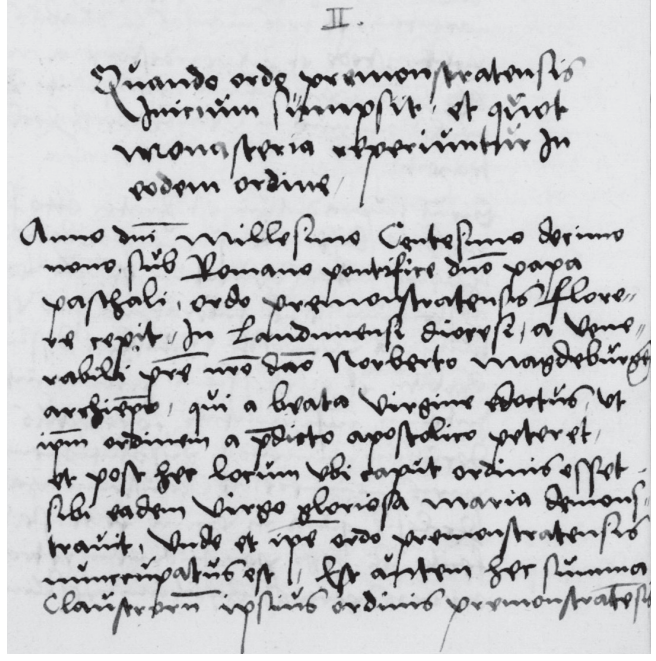 II.
Quando ordo premonstratensis
Inicium sumpsit et quot
monasteria reperiuntur In
eodem ordine
Anno dnī Millesimo Centesimo decimo
nono, sub Romano pontifice dnō papa
paschali, ordo premonstratensis flore=
re cepit, In Laudunensi diocesi, a vene=
rabili prē nrō dnō Norberto Magdeburgeñ
archiepō, qui a beata virgine edoctus, ut
ipm̄ ordinem a p̄dicto apostolico peteret,
et post hec locum ubi caput ordinis esset
sibi eadem virgo gloriosa maria demons=
travit, Unde et ip̄e ordo premonstratensis
nunccupatus est, Est autem hec summa
Claustrorū ipsius ordinis premonstratēsis